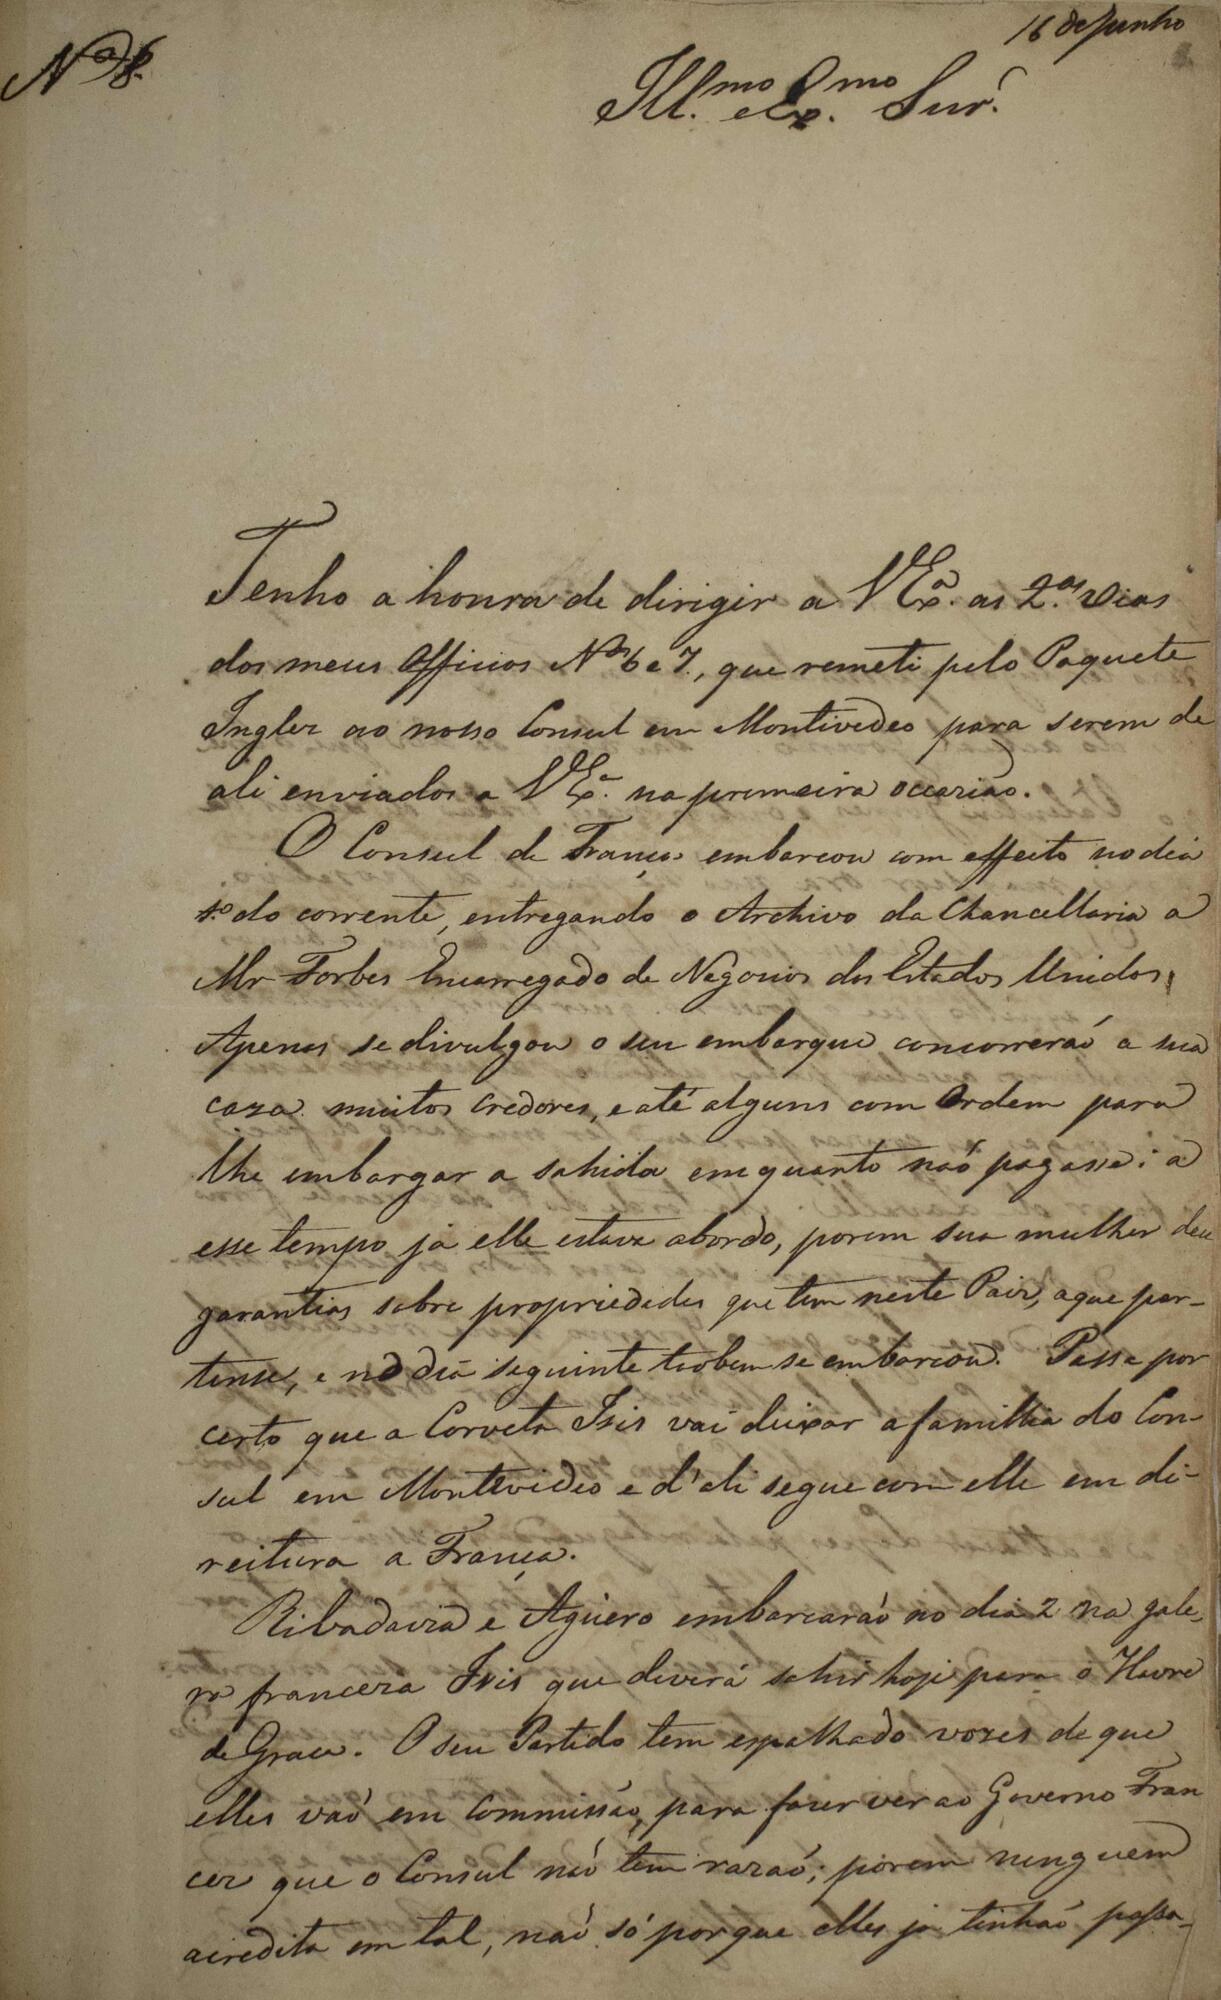 16 de Junho
Nº 8.
Ill.mo e Ex.mo Snr.
Tenho a honra de dirigir a VEx.ª as 2.as vias
dos meus Officios Nos 6 e 7, que remeti pelo Paquete
Inglez ao nosso Consul em Montivedeo para serem de
ali enviados a VEx.ª na primeira occazião.
O Consul de França embarcou com effeito no dia
1º do corrente, entregando o Archivo da Chancellaria a
Mr Forbes Encarregado de Negocios dos Estados Unidos,
Apenas se divulgou o seu embarque concorreraó a sua
caza muitos credores, e até alguns com Ordem para
lhe embargar a sahida emquanto naó pagasse: a
esse tempo já elle estava abordo, porem sua mulher deu
garantias sobre propriedades que tem neste Paiz, a que per-
tense, e no dia seguinte tãobem se embarcou. Passa por
certo que a Corveta Isis vai deixar a familhia do Con-
sul em Montevideo e d'ali segue com elle em di-
reitura a França.
Ribadavia e Agüero embarcaraó no dia 2 na gale-
ra franceza Isis que deverá sahir hoje para o Havre
de Grace. O seu Partido tem espalhado vozes de que
elles vaó em Commissão, para fazer ver ao Governo Fran
cez que o Consul naó tem razaó; porem ninguem
acredita em tal, naó só porque elles ja tinhaó passa-